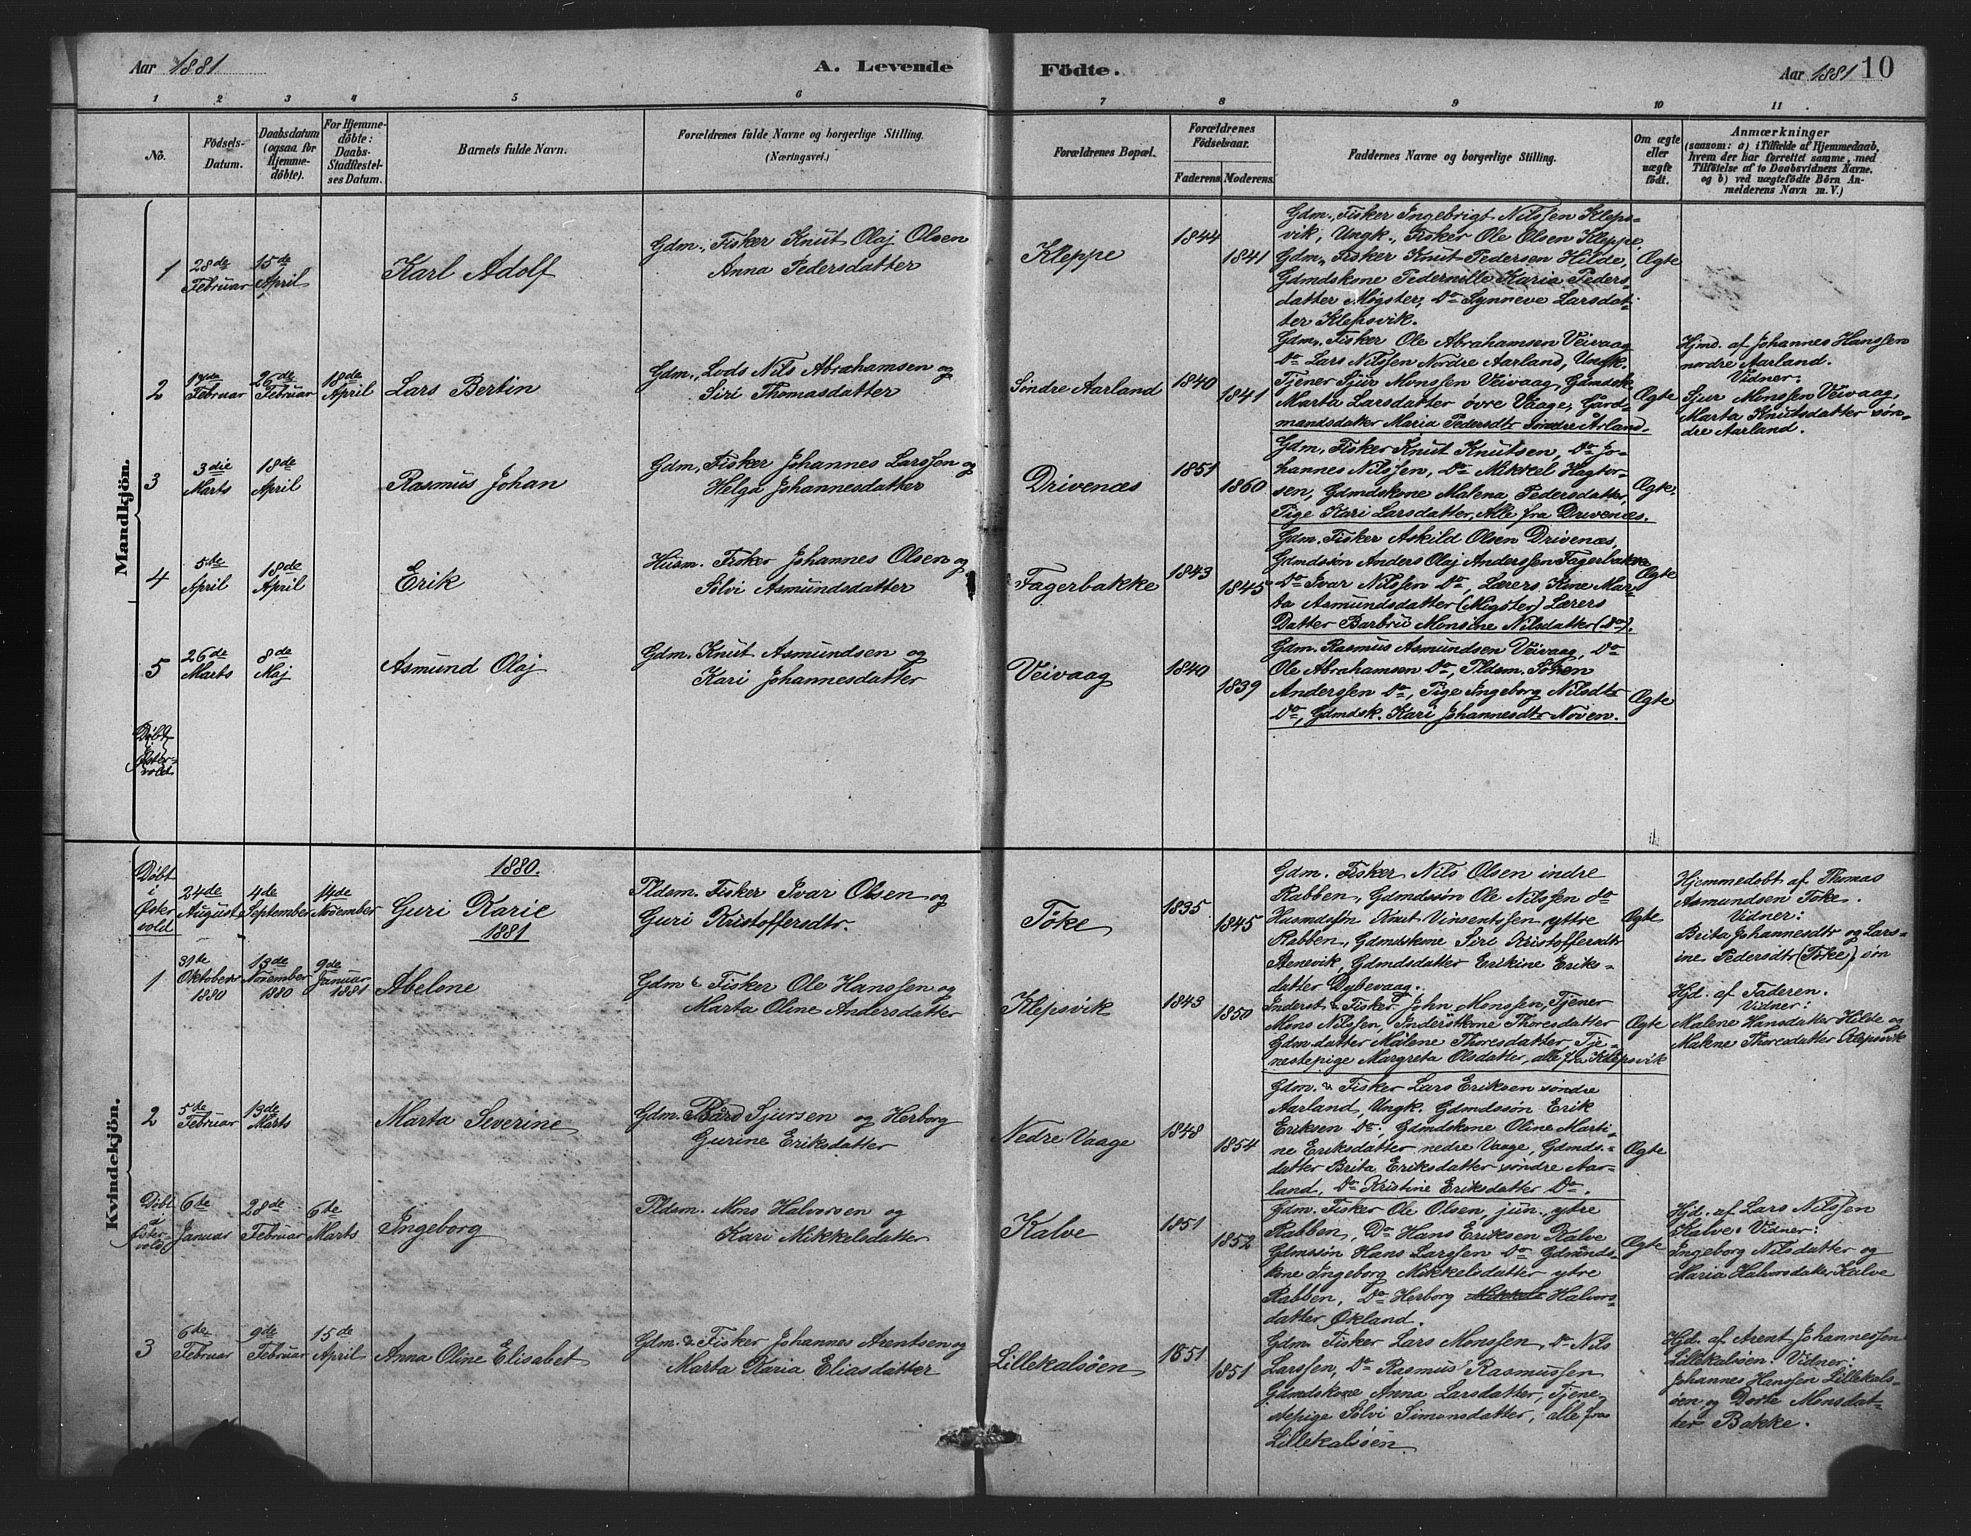 Aar 1881
A. Levende Födte.
Aar 1881 10
1 2 3 4 5 6 7 8 9 10 11
No.
Födsels-
Datum.
Daabsdatum
(ogsaa for
Hjemme-
døbte).
For Hjemme-
døbte:
Daabs-
Stadfæstel-
ses Datum.
Barnets fulde Navn.
Forældrenes fulde Navne og borgerlige Stilling.
(Næringsvei.)
Forældrenes Bopæl.
Forældrenes
Födselsaar.
Faderens Moderens
Faddernes Navne og borgerlige Stilling.
Om ægte
eller
uægte
födt.
Anmærkninger
(saasom: a) i Tilfælde af Hjemmedaab,
hvem der har forrettet samme, med
Tilföielse af to Daabsvidners Navne,
og b) ved uægtefödte Börn An-
melderens Navn m. V.)
Mandkjön.
1
28de
Februar
15de
April
Karl Adolf
Gdm., Fisker Knut Olaj Olsen
Anna Pedersdatter
Kleppe
1844
1841
Gdm., Fisker Ingebrigt Nilssen Kleps-
vik, Ungk., Fisker Ole Olsen Kleppe,
Gdm., Fisker Knut Pedersen Hilde,
Gdmdskone Pedernille Karia Peders-
datter Møgster, Do Synneve Larsdat-
ter Klepsvik.
Ægte
2
17de
Februar
26de
Februar
18de
April
Lars Bertin
Gdm., Lods Nils Abrahamsen og
Siri Thomasdatter
Sindre Aarland
1840
1841
Gdm., Fisker Ole Abrahamsen Veivaag
Do Lars Nilssen Nordre Aarland, Ungk.
Tjener Sjur Monssen Veivaag, Gdmdsk.
Marta Larsdatter øvre Vaage, Gård-
mandsdatter Maria Pedersdtr Søndre Årland.
Ægte
Hjmd. af Johannes Hanssen
nordre Aarland.
Vidner:
Sjur Monssen Veivaag,
Marta Knutsdatter søn-
dre Aarland.
3
3die
Marts
18de
April
Rasmus Johan
Gdm., Fisker Johannes Larssen og
Helga Johannesdatter
Drivenæs
1851
1860
Gdm., Fisker Knut Knutsen, Do Jo-
hannes Nilssen, Do Mikkel Hagtor-
sen, Gdmdskone Malena Pedersdatter,
Pige Kari Larsdatter, Alle fra Drivenæs.
Ægte.
4
5te
April
18de
April
Erik
Husm. Fisker Johannes Olsen og
Sølvi Asmundsdatter
Fagerbakke
1843
1845
Gdm. Fisker Askild Olsen Drivenæs,
Gdmdsøn Anders Olaj Anderssen Fagerbakke
Do Ivar Nilssen Do, Lærers Kone Mar-
ta Asmundsdatter (Møgster) Lærers
Datter Barbru Monsine Nilsdatter (Do).
Ægte
5
26de
Marts
8de
Maj
Asmund Olaj
Gdm. Knut Asmundsen og
Kari Johannesdatter
Veivaag
1840
1839
Gdm. Rasmus Asmundsen Veivaag, Do
Ole Abrahamsen Do, Pldsm. Søren
Anderssen Do, Pige Ingeborg Nilsdtr
Do, Gdmdsk. Kari Johannesdtr Noven.
Ægte
Døbt
i
Øster-
vold
Kvindekjön.
1880.
Døbt
i
Øster
vold
24de
August
4de
September
14de
November
Guri Karie
Pldsm. Fisker Ivar Olsen og
Guri Kristoffersdtr.
Töke
1835
1845
Gdm. Fisker Nils Olsen indre
Rabben, Gdmdssøn Ole Nilssen do
Husmdsøn Knut Vinsentssen yttre
Rabben, Gdmdskone Siri Kristoffersdtr
Stenevik, Gdmdsdatter Erikine Eriks-
datter Dybevaag.
Ægte
Hjemmedøbt af Thomas
Asmundsen Töke.
Vidner:
Brita Johannesdtr og Lars-
ine Pedersdtr (Töke)
1881
1
31te
Oktober
1880
13de
November
1880
9de
Januar
1881
Abelone
Gdm & Fisker Ole Hanssen og
Marta Oline Andersdatter
Klepsvik
1843
1850
Inderst & Fisker John Monssen, Tjener
Mons Nilssen, Inderstkone Thoresdatter
Gdm datter Malene Thoresdatter, Tje-
nestepige Margreta Olsdatter, alle fra Klepsvik
Ægte
Hjd. af Faderen.
Vidner:
Malene Hansdatter Hilde og
Malene Thoresdatter Klepsvik
2
5te
Februar
13de
Marts
Marta Severine
Gdm. Bård Sjursen og Herborg
Gurine Eriksdatter
Nedre Vaage
1848
1854
Gdm. & Fisker Lars Eriksen søndre
Aarland, Ungk. Gdmdssøn Erik
Eriksen Do, Gdmdskone Oline Marti-
ne Eriksdatter nedre Vaage, Gdmds-
datter Brita Eriksdatter søndre Aar-
land, Do Kristine Eriksdatter Do.
Ægte
Døbt
i
Øster-
vold
6te
Januar
28de
Februar
6te
Marts
Ingeborg
Pldsm. Mons Halvorsen og
Kari Mikkelsdatter
Kalve
1851
1852
Gdm. Fisker Ole Olsen, jun. ytre
Rabben, Do Hans Eriksen Kalve
Gdmssøn Hans Larssen Do Gdmds-
kone Ingeborg Mikkelsdatter ytre
Rabben, Do Herborg Halvors-
datter Økland.
Ægte
Hjd. af Lars Nilssen
Kalve. Vidner:
Ingeborg Nilsdatter og
Maria Halvorsdatter Kalve
3
6te
Februar
9de
Februar
15de
April
Anna Oline Elisabet
Gdm. & Fisker Johannes Arentsen og
Marta Karia Eliasdatter
Lillekalsöen
1851
1851
Gdm. Fisker Lars Monssen, Do Nils
Larssen, Do Rasmus Rasmussen
Gdmdskone Anna Larsdatter, Tjene
stepige Sølvi Simonsdatter, alle fra
Lillekalsöen.
Hjd. af Arent Johannessen
Lillekalsöen. Vidner:
Johannes Hanssen Lillekals-
öen og Dorte Monsdat-
ter Bakke.